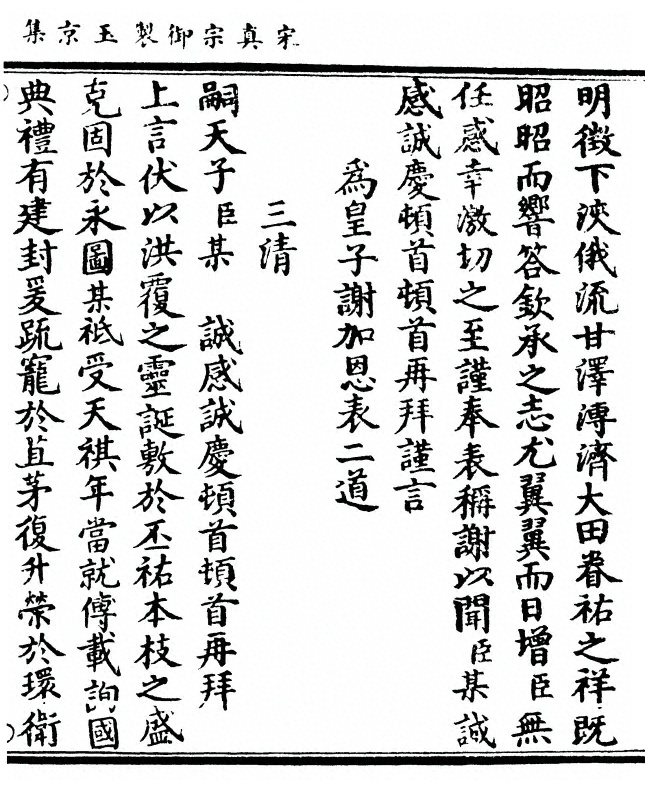 宋真宗御製玉京集
明徴下浹俄流甘澤溥濟大田眷祐之祥既
昭昭而響答欽承之志尤翼翼而日增臣無
任感幸激切之至謹奉表稱謝以聞臣某誠
感誠慶頓首頓首再拜謹言
為皇子謝加恩表二道
三清
嗣天子臣某 誠感誠慶頓首頓首再拜
上言伏以洪覆之靈誕敷於丕祐本枝之盛
克固於永圖某祗受天祺年當就傅載詢國
典禮有建封爰疏寵於苴茅復升榮於環衛